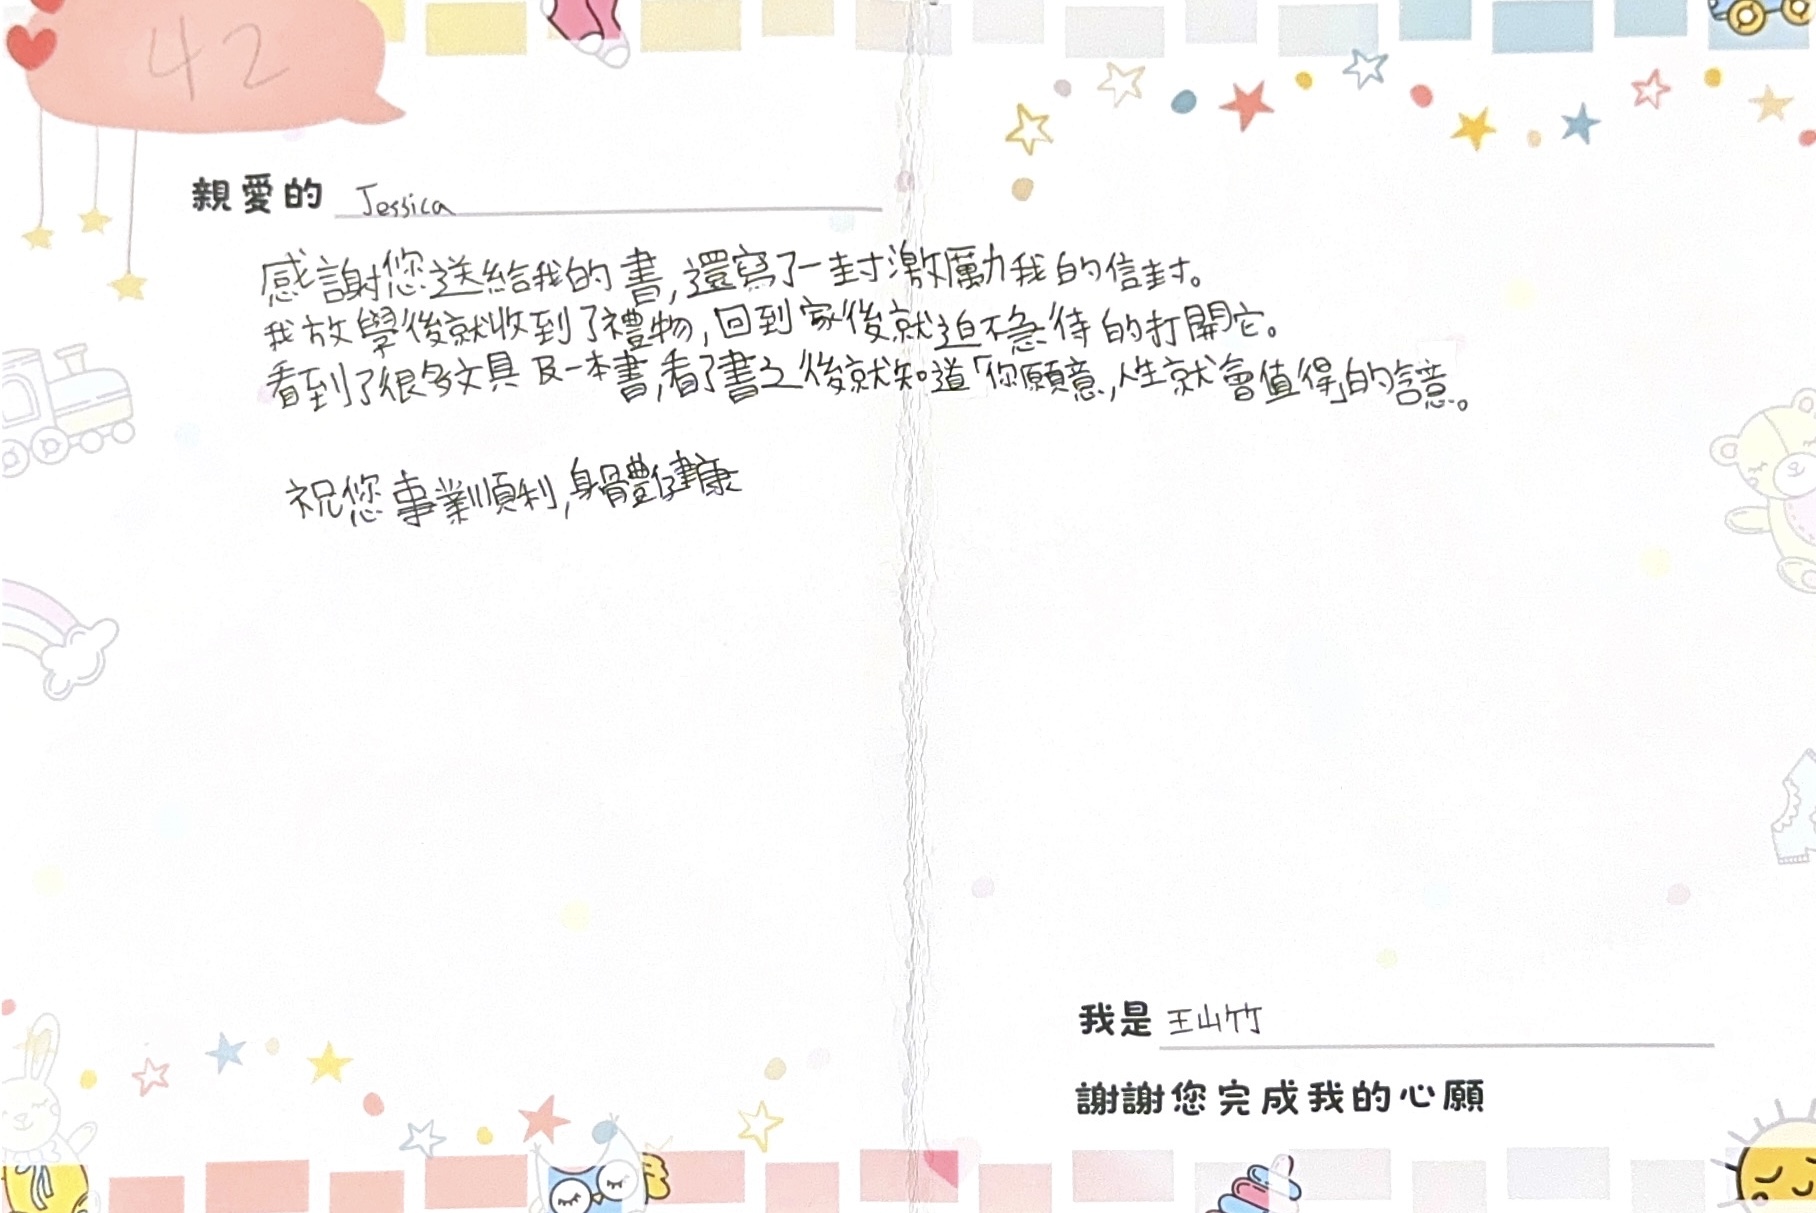 42
親愛的 Jessica
感謝您送給我的書,還寫了一封激勵我的信封。
我放學後就收到了禮物,回到家後就迫不急待的打開它。
看到了很多文具及一本書,看了書之後就知道「你願意,人生就會值得」的意。
祝您事業順利,身體健康
我是 王山竹
謝謝您完成我的心願